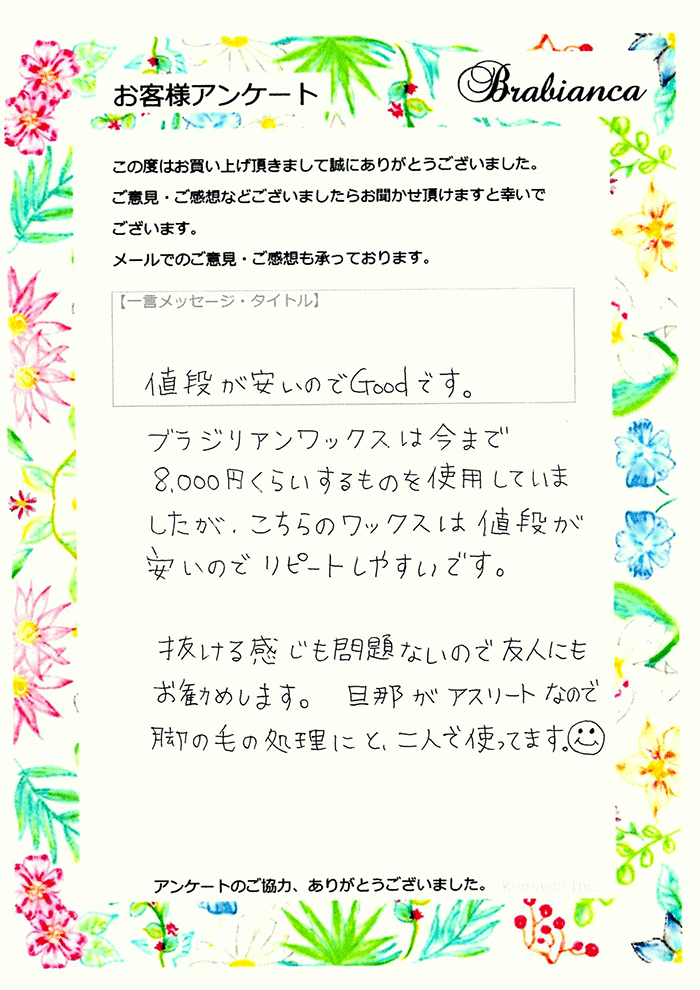 お客様アンケート
Brabianca
この度はお買い上げ頂きまして誠にありがとうございました。
ご意見・ご感想などございましたらお聞かせ頂けますと幸いで
ございます。
メールでのご意見・ご感想も承っております。
【一言メッセージ・タイトル】
値段が安いのでGoodです。
ブラジリアンワックスは今まで
8,000円くらいするものを使用していま
したが、こちらのワックスは値段が
安いのでリピートしやすいです。
抜ける感じも問題ないので友人にも
お勧めします。 旦那がアスリートなので
脚の毛の処理にと、二人で使ってます。
アンケートのご協力、ありがとうございました。
Komachi Inc.